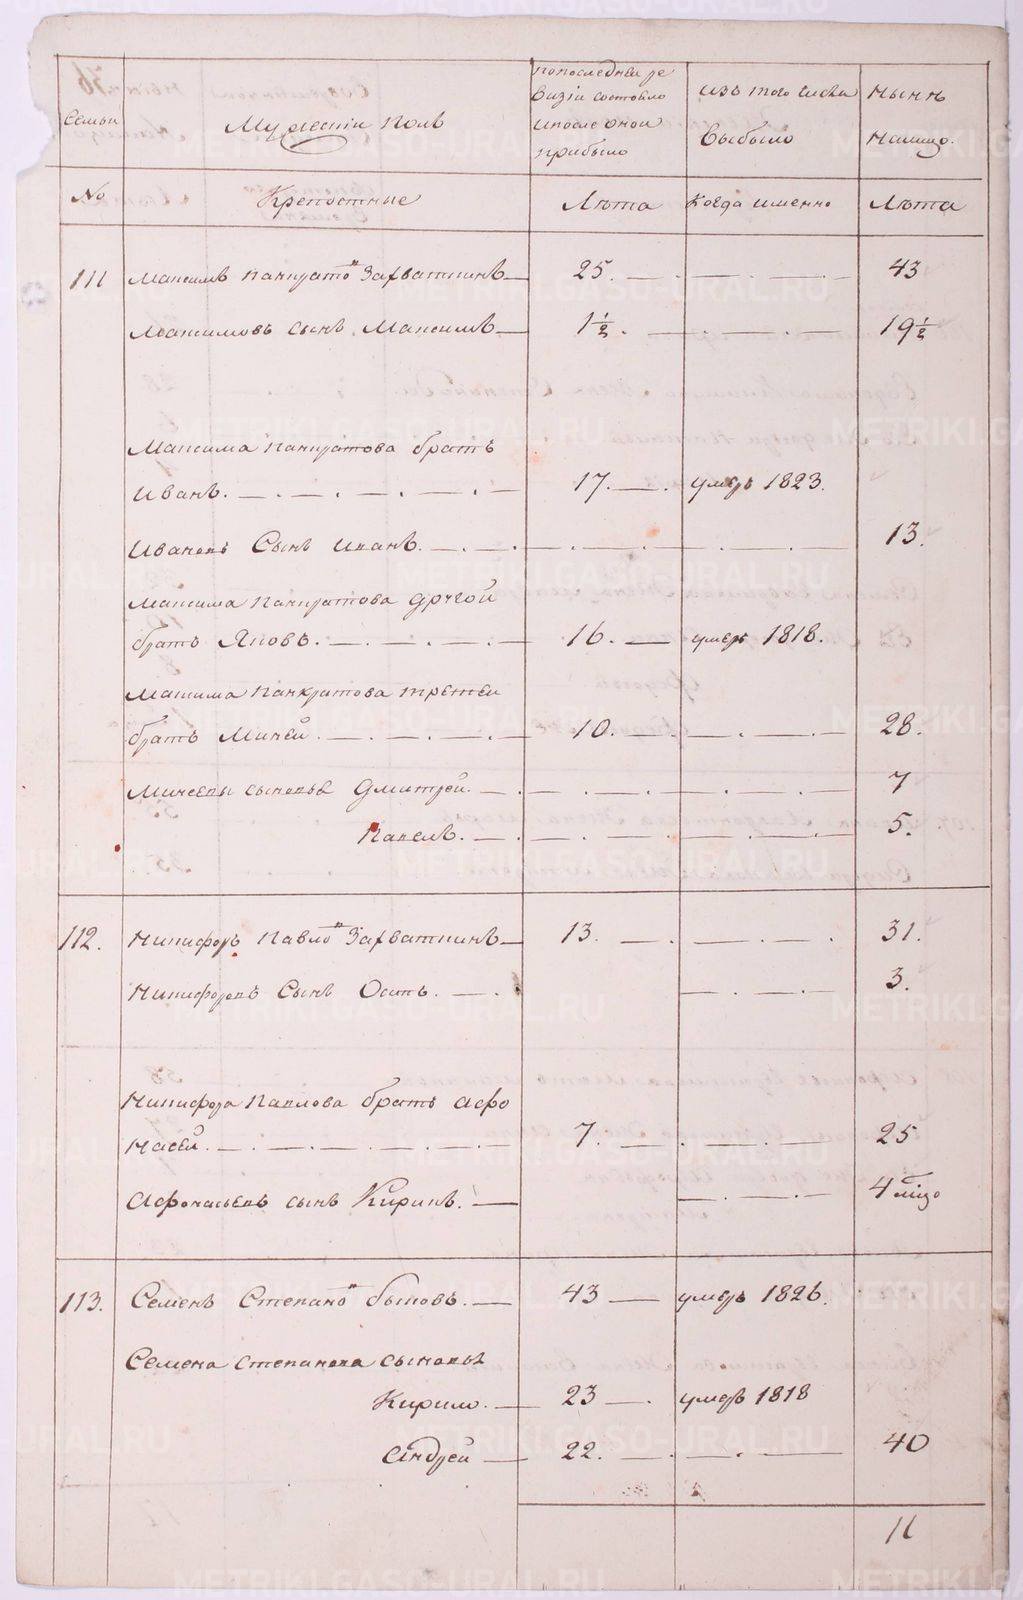 Семьи
Мужескiй полъ
попоследней ре
визiи состояло
и после оной
прибыло
изъ того числа
выбыло
Нынѣ
налицо.
№ Крепостные Лѣта Когда именно Лѣта
111 Максимъ Панкратовъ Захваткинъ 25. 43
Максимовъ сынъ Максимъ 1½. 19½
Максима Панкратова братъ
Иванъ. 17. умеръ 1823.
Ивановъ Сынъ Иванъ. 13.
Максима Панкратова другой
братъ Яковъ. 16. умеръ 1818.
Максима Панкратова третей
братъ Микей. 10. 28.
Микеевы сыновья Дмитрей. 7
Павелъ. 5.
112. Никифоръ Павловъ Захваткинъ 13. 31.
Никифоровъ Сынъ Осипъ. 3.
Никифора Павлова братъ Афо
насей. 7. 25
Афонасьевъ сынъ Кирикъ. 4
113. Семенъ Степановъ Бытовъ. 43 умеръ 1826.
Семена Степанова сыновья
Кирило. 23 умеръ 1818
Андрей 22. 40
11
METRIKI.GASO-URAL.RU